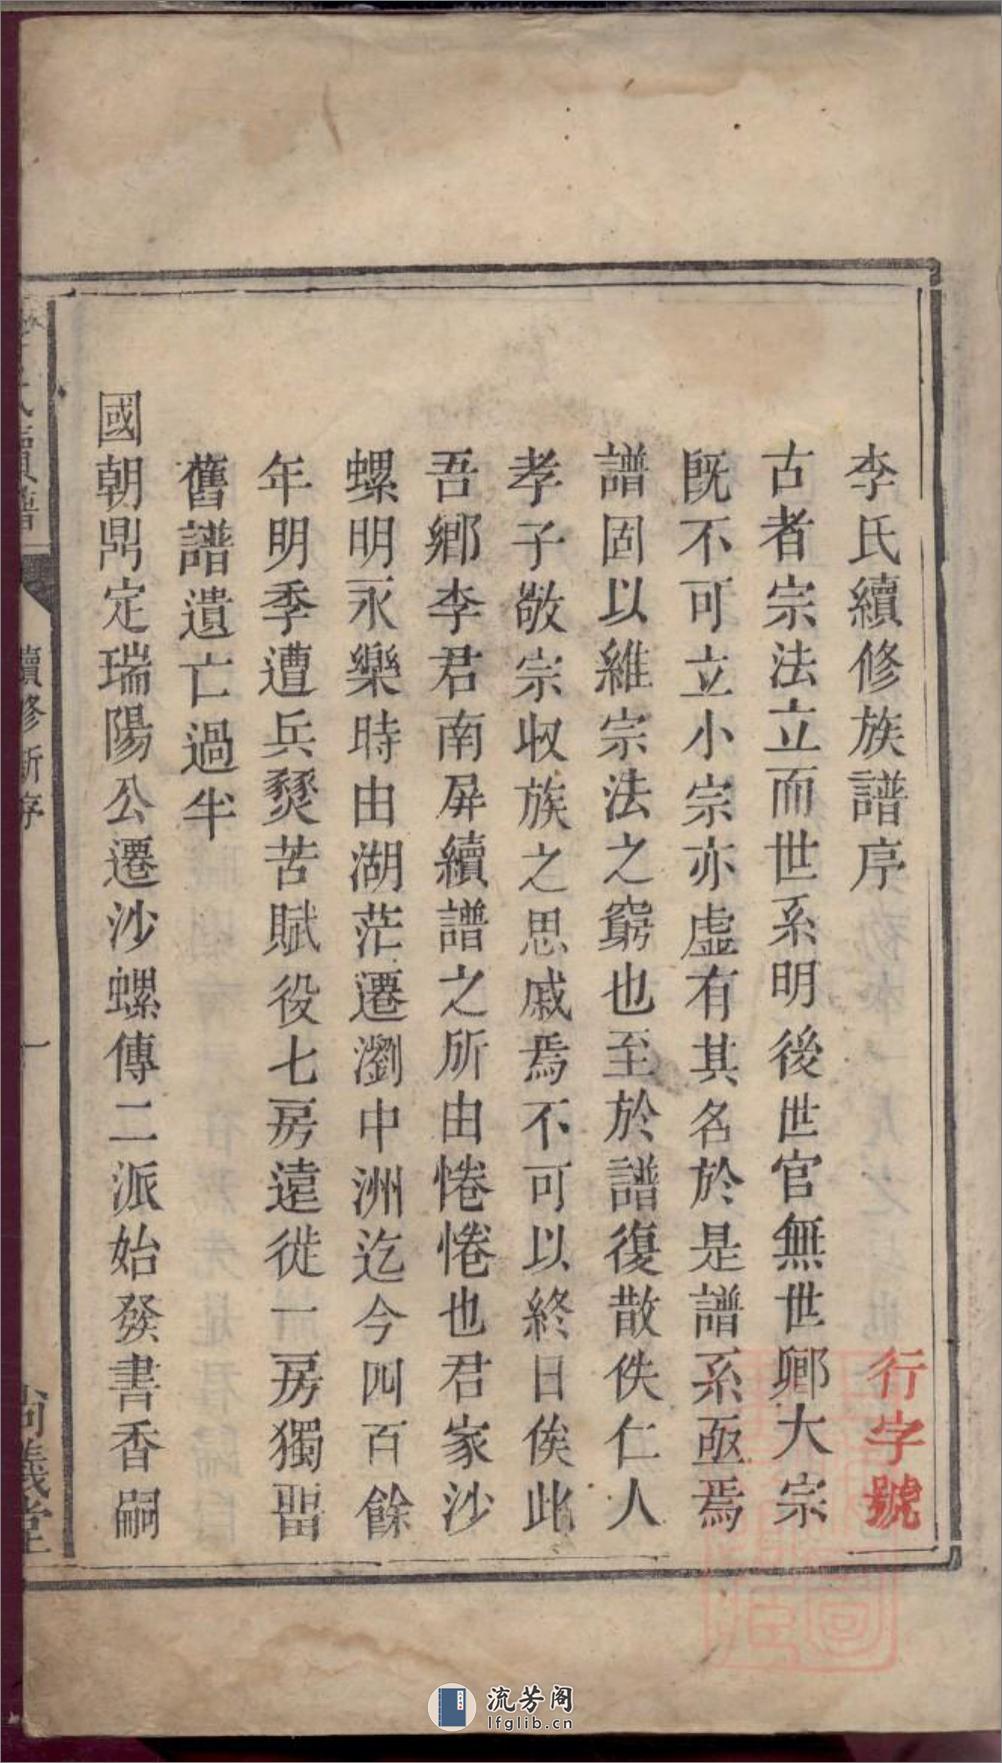 李氏續修族譜序
行字號
古者宗法立而世系明後世官無世卿大宗
既不可立小宗亦虛有其名於是譜系亟焉
譜固以維宗法之窮也至於譜復散佚仁人
孝子敬宗收族之思戚焉不可以終日俟此
吾鄉李君南屏續譜之所由惓惓也君家沙
螺明永樂時由湖茫遷瀏中洲迄今四百餘
年明季遭兵燹苦賦役七房遠徙一房獨留
舊譜遺亡過半
國朝鼎定瑞陽公遷沙螺傳二派始發書香嗣
續修新序
一
尚義堂
流芳阁
lfglib.cn